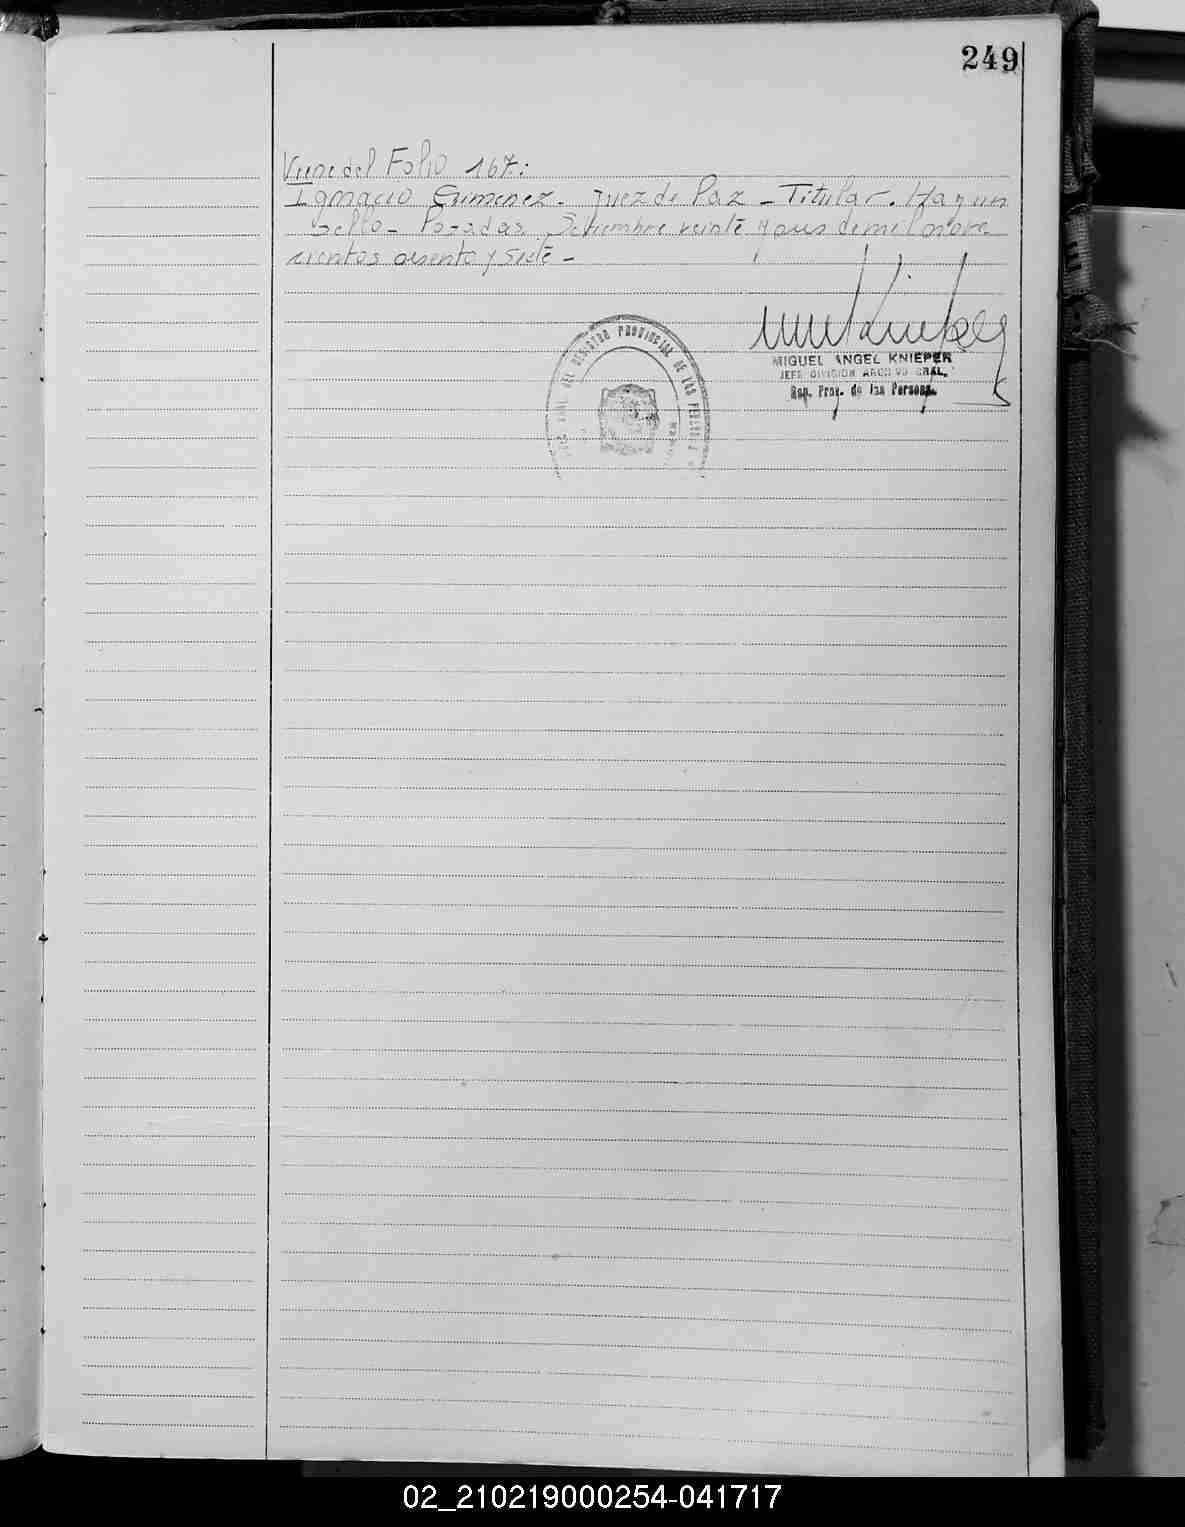 249
Viene del Folio 167:
Ignacio Gimenez - Juez de Paz - Titular. Hay un
Sello - Posadas, Setiembre veinte y dos de mil nove
cientos ochenta y siete -
MIGUEL ANGEL KNIEPER
JEFE DIVISION ARCHIVO GRAL.
Reg. Prov. de las Personas
GRAL. DEL REGISTRO PROVINCIAL DE LAS PERSONAS
02_210219000254-041717